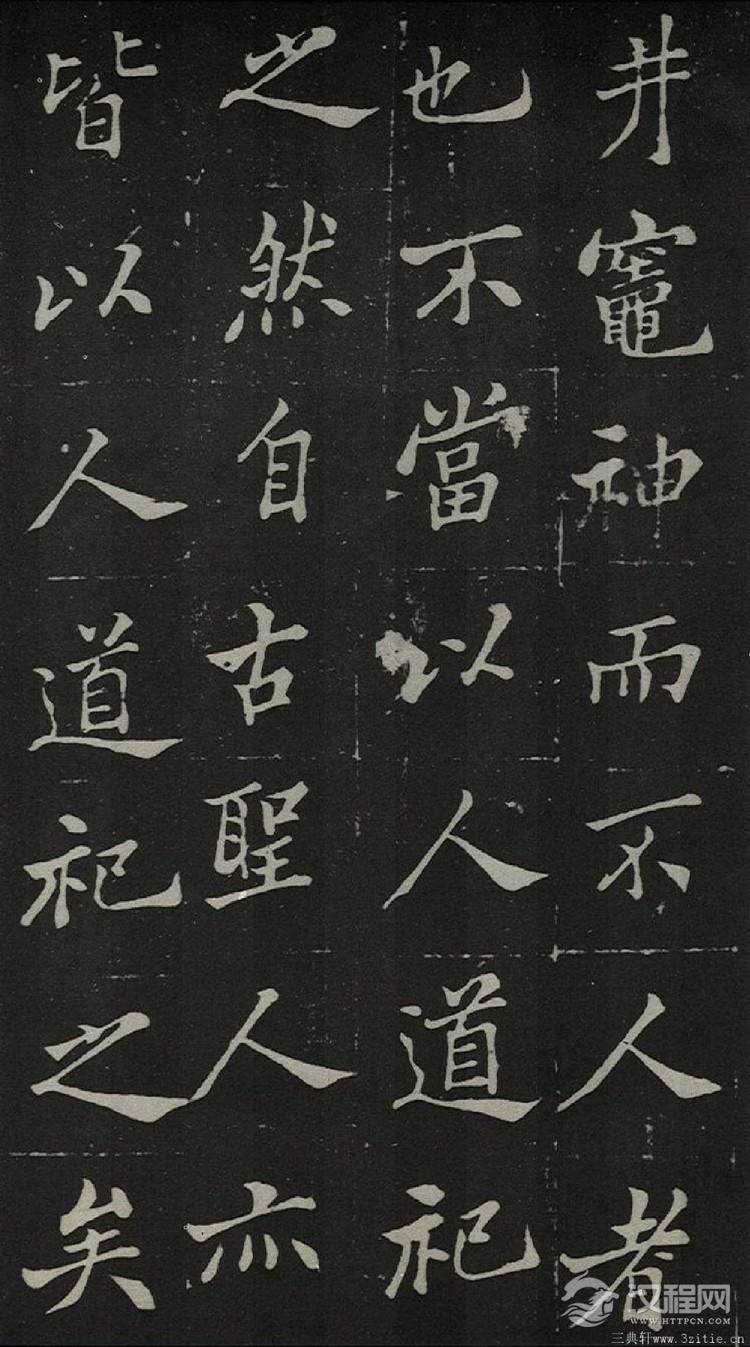 井竈神而不人者
也不當以人道祀
之然自古聖人亦
皆以人道祀之矣
汉程网
WWW.HTTPCN.COM
三典轩www.3zitie.cn